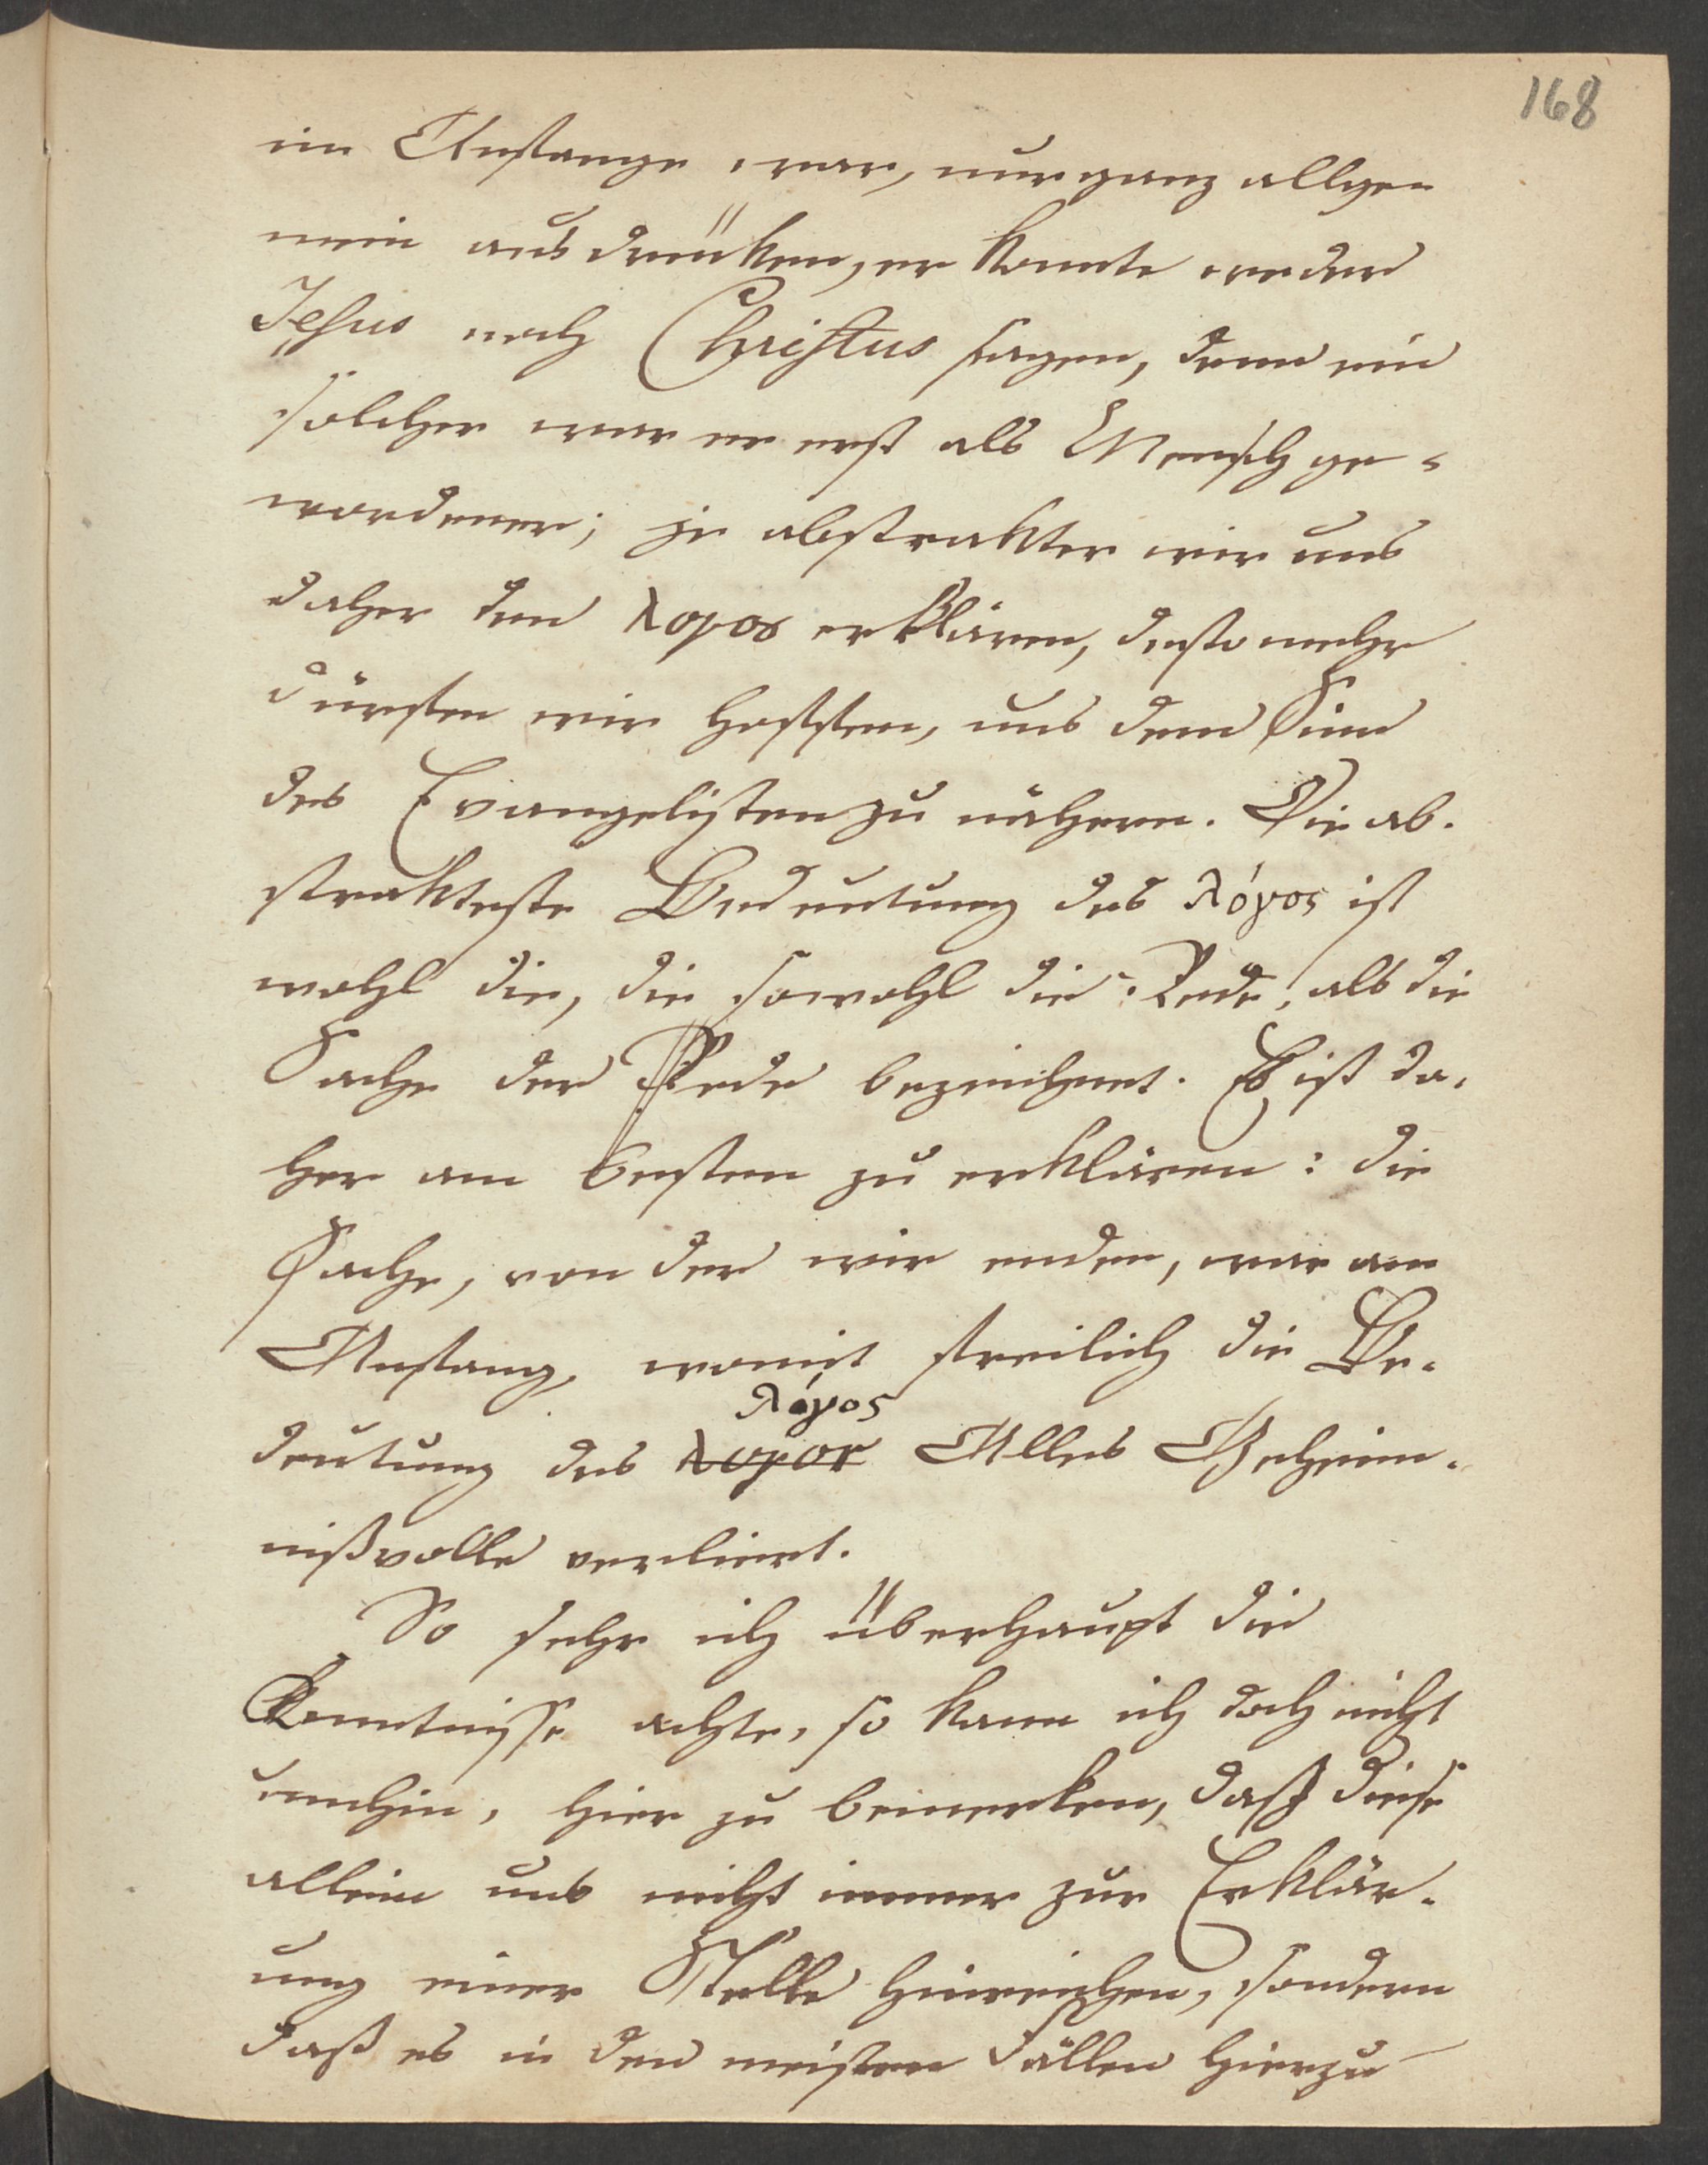 168
im Anfange war, nur ganz allge-
mein ausdrücken, er konnte weder
Jesus noch Christus sagen, denn ein
solcher war er erst als Mensch ge-
wordener; je abstrakter wir uns
daher den λογος erklären, desto mehr
dürfen wir hoffen, uns dem Sinn
des Evangelisten zu nähern. Die ab-
strakteste Bedeutung des λόγος ist
wohl die, die sowohl die Rede, als die
Sache der Rede bezeichnet. Es ist da-
her am besten zu erklären: die
Sache, von der wir reden, war am
Anfang, womit freilich die Be-
λόγος
deutung des λογος Alles Geheim-
nißvolle verliert.
So sehr ich überhaupt die
Kenntnisse achte, so kann ich doch nicht
umhin, hier zu bemerken, daß diese
allein uns nicht immer zur Erklär-
ung einer Stelle hinreichen, sondern
daß es in den meisten Fällen hierzu